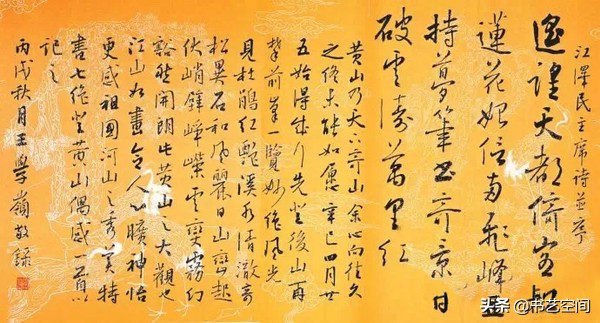 江澤民主席詩並序
遙望天都倚客松
蓮花始信兩飛峰且
持夢筆書奇景日
破雲濤萬里紅
黃山乃天下奇山余心向往久
之終未能如愿辛巳四月廿
五始得成行先登後山再
攀前峯一覽妙絕風光
見杜鵑紅艷溪水清澈奇
松異石和風麗日山巒起
伏峭壁崢嶸雲變霧幻
豁然開朗此黃山之大觀也
江山如畫令人心曠神怡
更感祖國河山之秀美特
書七絕登黃山偶感一首以
記之
丙戌秋月王學嶺敬錄
头条 @书艺空间